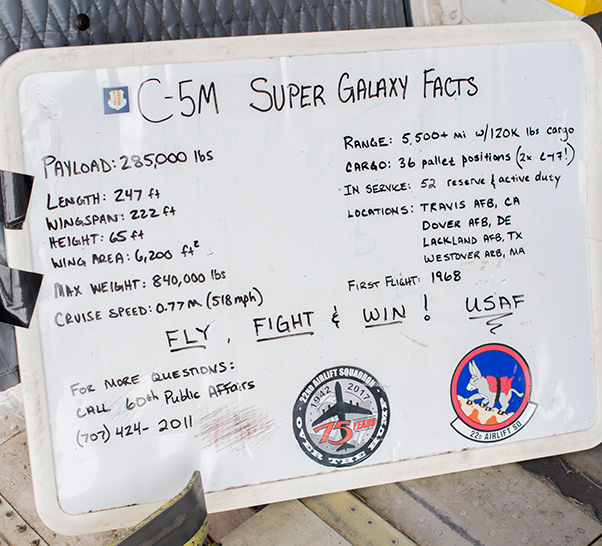 C-5M SUPER GALAXY FACTS
PAYLOAD: 285,000 lbs
LENGTH: 247 ft
WINGSPAN: 222 ft
HEIGHT: 65 ft
WING AREA: 6,200 ft²
MAX WEIGHT: 840,000 lbs
CRUISE SPEED: 0.77M (518mph)
RANGE: 5,500+ mi w/120K lbs cargo
CARGO: 36 pallet positions (2x C-17!)
IN SERVICE: 52 reserve & active duty
LOCATIONS: TRAVIS AFB, CA
DOVER AFB, DE
LACKLAND AFB, TX
WESTOVER ARB, MA
FIRST FLIGHT: 1968
FLY, FIGHT & WIN! USAF
FOR MORE QUESTIONS:
CALL 60th Public Affairs
(707) 424-2011
22ND AIRLIFT SQUADRON
1942 2017
75 YEARS
OVER THE HUMP
22d AIRLIFT SQ